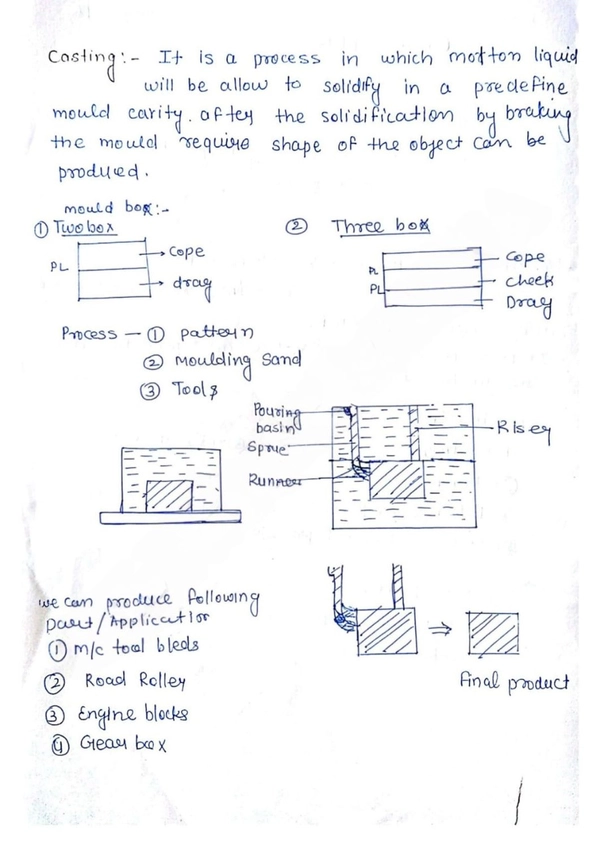 Casting:- It is a process in which motton liquid
will be allow to solidify in a predefine
mould carity. after the solidification by braking
the mould require shape of the object can be
produed.
mould box:-
① Two box
PL
Cope
drag
② Three box
PL
PL
Cope
cheek
Drag
Process — ① pattern
② Moulding Sand
③ Tools
Pouring
basin
Sprue
Runner
Riser
we can produce following
part/Application
① m/c tool bleds
② Road Roller
③ Engine blocks
④ Gear box
final product